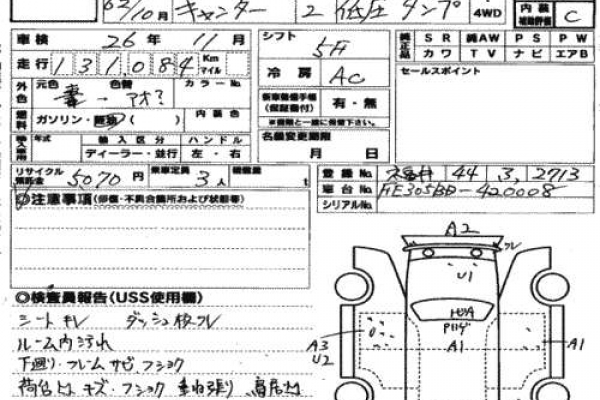 62/10月 キャンター 2 低圧 ダンプ 4WD 内装 補助評価 C
車検 26年 11月 シフト 5F 純正品 SR 純AW PS PW
カワ TV ナビ エアB
走行 131,084 Km マイル 冷房 AC セールスポイント
外色 元色 色替 カラーNo. アオ?
新車整備手帳(保証書付) 有・無
※書類と一緒に保管下さい。
燃料 ガソリン・軽油・( ) 内装色
輸入車用 年式 輸入区分 ハンドル 名義変更期限
ディーラー・並行 左・右 月 日
リサイクル預託金 5070円 乗車定員 3人 積載量 t
登録No. 44 3 2713
車台No. FE305BD-420008
シリアルNo.
◎注意事項(修復・不具合箇所および状態等)
A2
U1
◎検査員報告(USS使用欄)
シートキレ ダッシュ板フレ
ルーム内汚れ
下廻り・フレームサビ・フショク
荷台上キズ・フショク
A3
U2
A1
A1